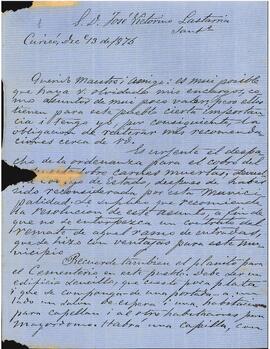 S. D. José Victorino Lastarria
Sant.
Curicó, Dic. 13 de 1876
Querido Maestro i Amigo: es mui posible
que haya V. olvidado mis encargos, co
mo asuntos de mui poco valor; pero ellos
tienen para este pueblo cierta importan
cia i tengo yo, por consiguiente, la
obligacion de reiterar mis recomenda
ciones cerca de Vd.
Es urjente el despa
cho de la ordenanza para el cobro del
carnes muertas,
de Estado, despues de haber
sido reconsiderada por esta Munici
palidad. Le suplico que recomiende
la resolucion de este asunto, a fin de
que no se entorpezca un contrato de
remate de aquel ramo de entradas,
que se hizo con ventajas para este mu
nicipio
Recuerde tambien el planito para
el Cementerio en este pueblo. Debe ser un
edificio sencillo, que cueste poca plata
i que se componga de una portada: a un
lado un salon de espera i una habitacion
para capellan i al otro habitaciones para
Mayordomo. Habrá una capilla, con